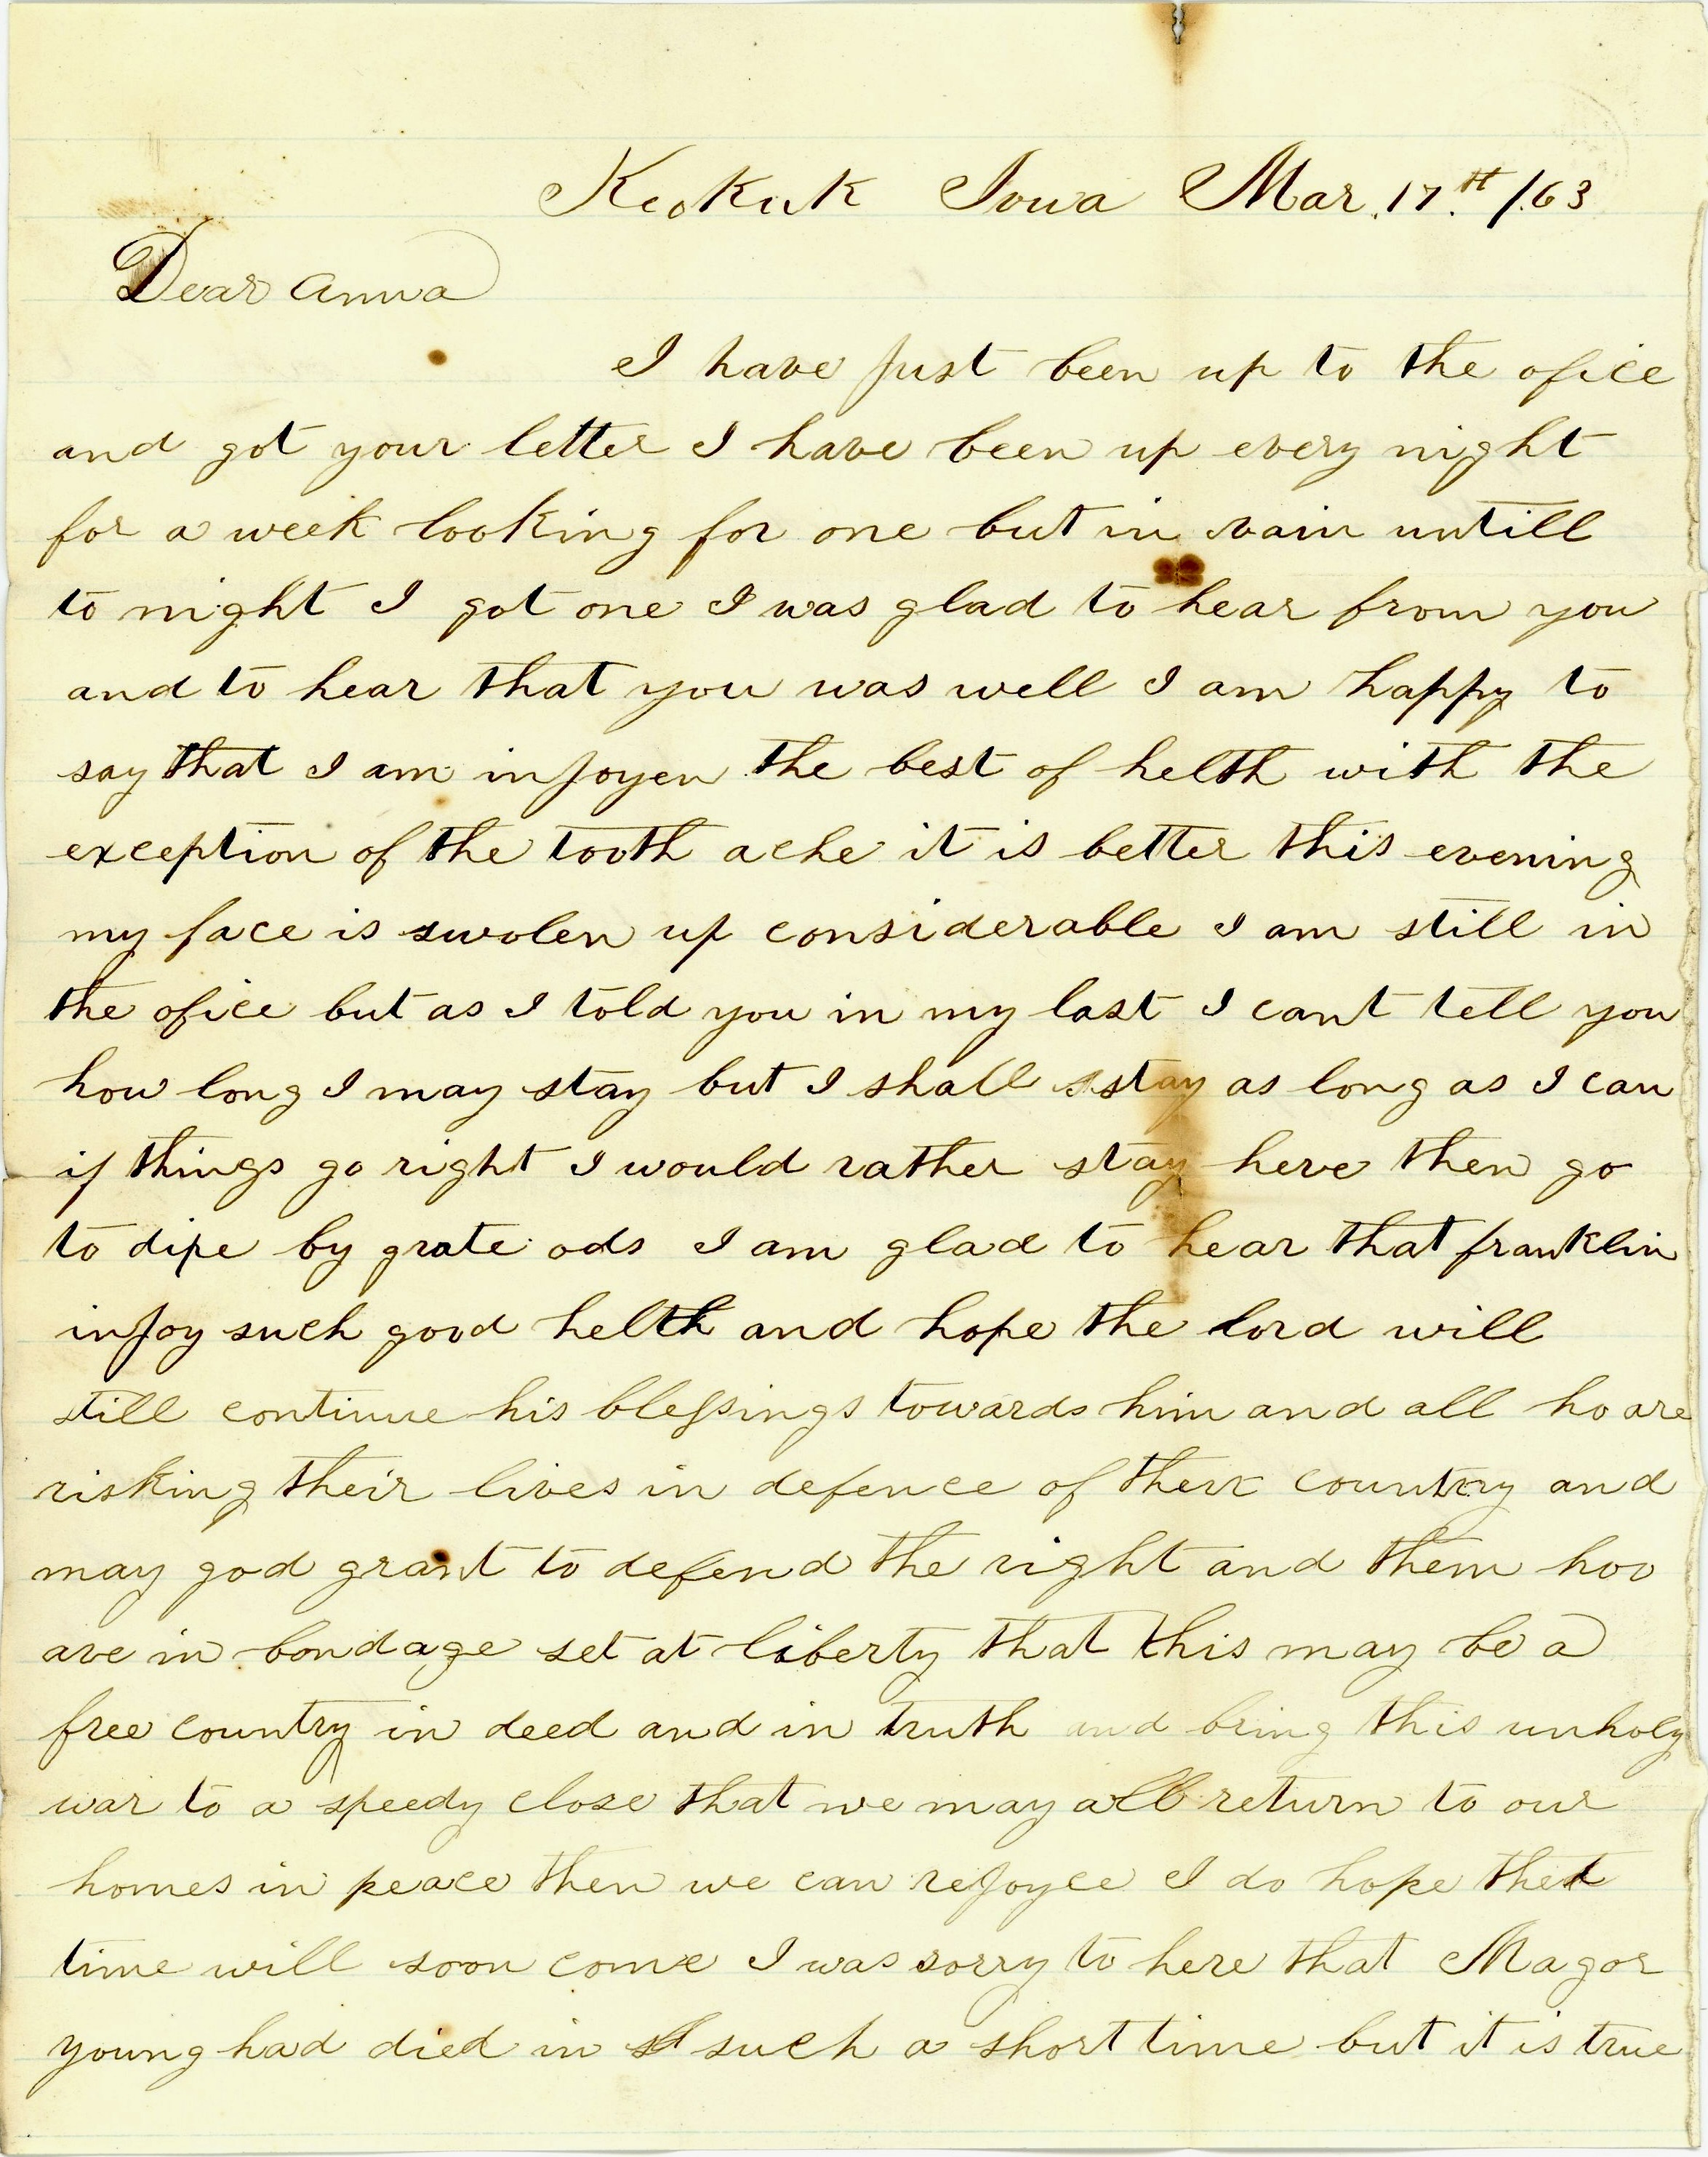 Keokuk Iowa Mar. 17.th /63
Dear Anna
I have just been up to the ofice
and got your letter I have been up every night
for a week looking for one but in vain untill
to night I got one I was glad to hear from you
and to hear that you was well I am happy to
say that I am injoyen the best of helth with the
exception of the tooth ache it is better this evening
my face is swolen up considerable I am still in
the ofice but as I told you in my last I cant tell you
how long I may stay but I shall sstay as long as I can
if things go right I would rather stay here then go
to dixe by grate ods I am glad to hear that franklin
injoy such good helth and hope the lord will
still continue his blessings towards him and all ho are
risking their lives in defence of their country and
may god grant to defend the right and them hoo
are in bondage set at liberty that this may be a
free country in deed and in truth and bring this unholy
war to a speedy close that we may all return to our
homes in peace then we can rejoyce I do hope thet
time will soon come I was sorry to here that Magor
young had died in such a short time but it is true